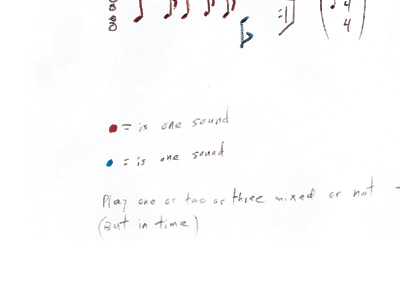 4
4
= is one sound
= is one sound
Play one or two or three mixed or not -
(But in time)